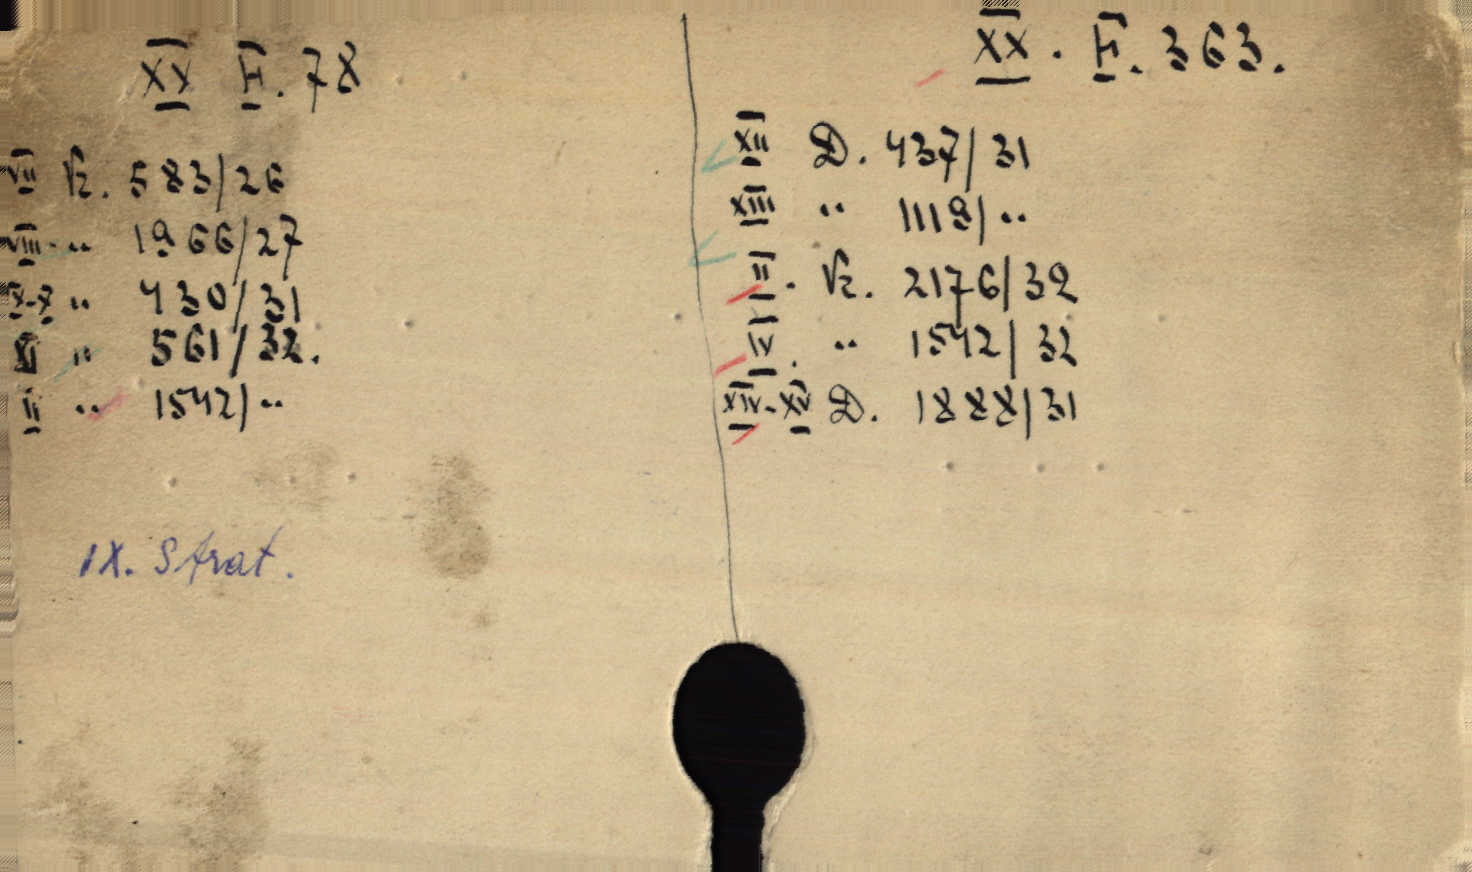 XX F. 78
VII Vz. 583/26
VIII " 1966/27
IX-X " 430/31
XI " 561/32.
II " 1542/"
IX. Strat.
XX. F. 363.
XII D. 437/31
XIII " 1119/"
II. Vz. 2176/32
IV. " 1542/32
XIV-XV D. 1888/31